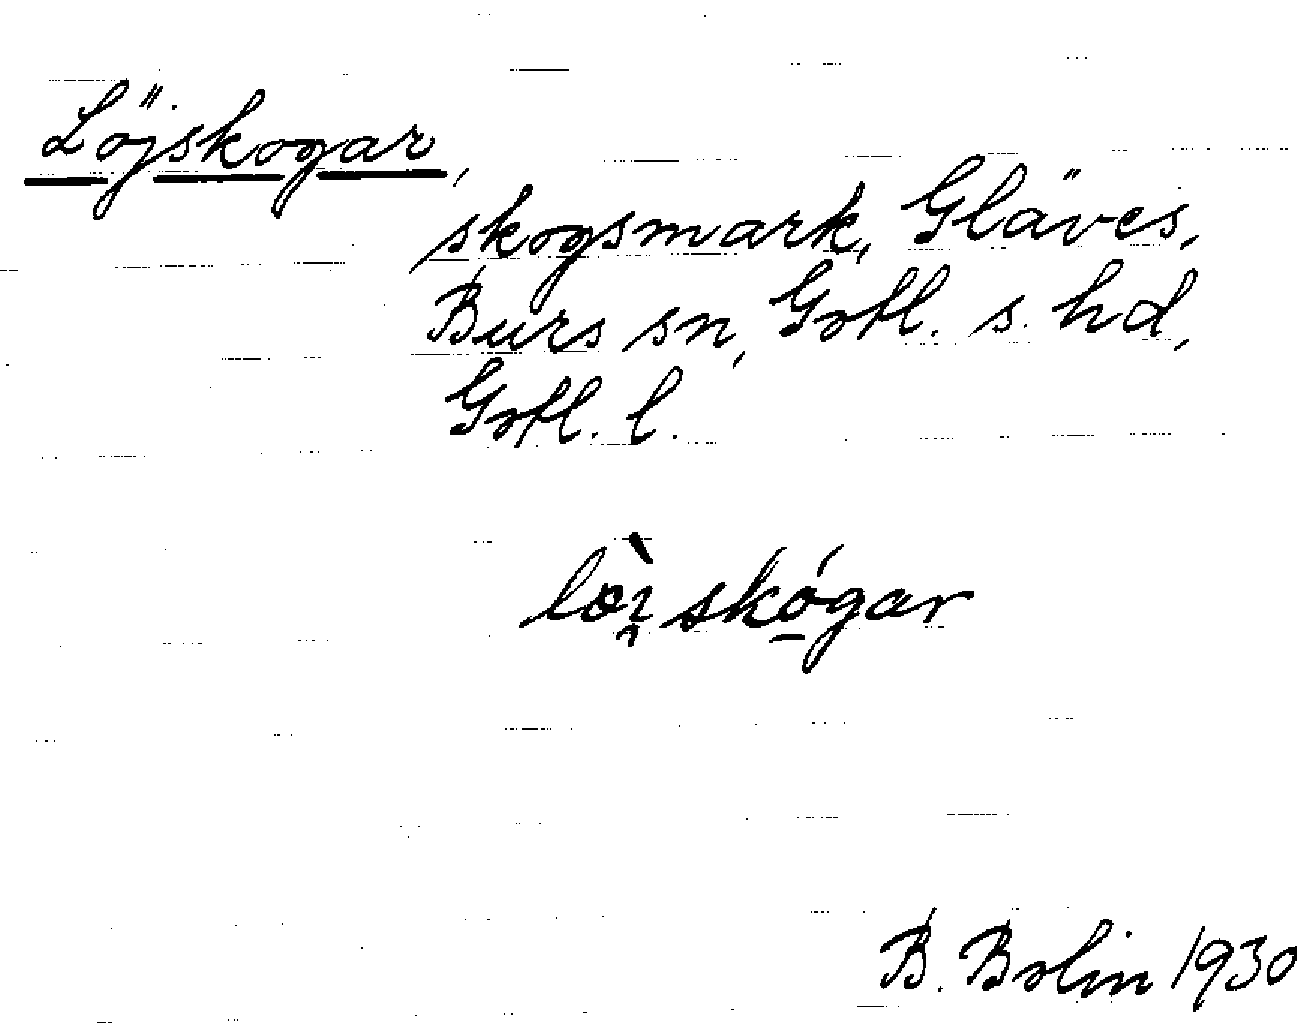 Löjskogar,
skogsmark, Gläves,
Burs sn, Gotl. s. hd,
Gotl. l.
lòi̯skógar
B. Bolin 1930